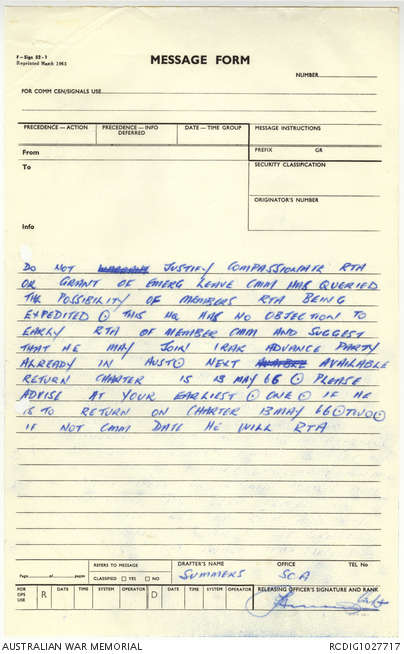 F—Sign 52-1
Reprinted March 1961
MESSAGE FORM
NUMBER
FOR COMM CEN/SIGNALS USE
PRECEDENCE—ACTION
PRECEDENCE—INFO DEFERRED
DATE—TIME GROUP
MESSAGE INSTRUCTIONS
From
PREFIX GR
To
SECURITY CLASSIFICATION
ORIGINATOR'S NUMBER
Info
DO NOT JUSTIFY COMPASSIONAIR RTA
OR GRANT OF EMERG LEAVE CMM HAS QUERIED
THE POSSIBILITY OF MEMBERS RTA BEING
EXPEDITED ⊙ THIS HQ HAS NO OBJECTION TO
EARLY RTA OF MEMBER CMM AND SUGGEST
THAT HE MAY JOIN 1RAR ADVANCE PARTY
ALREADY IN AUST ⊙ NEXT AVAILABLE
RETURN CHARTER IS 13 MAY 66 ⊙ PLEASE
ADVISE AT YOUR EARLIEST ⊙ ONE ⊙ IF HE
IS TO RETURN ON CHARTER 13 MAY 66 ⊙ TWO ⊙
IF NOT CMM DATE HE WILL RTA
Page of pages
REFERS TO MESSAGE
CLASSIFIED YES NO
DRAFTER'S NAME
SUMMERS
OFFICE
SCA
TEL No
FOR OPS USE
R DATE TIME SYSTEM OPERATOR D DATE TIME SYSTEM OPERATOR
RELEASING OFFICER'S SIGNATURE AND RANK
AUSTRALIAN WAR MEMORIAL
RCDIG1027717